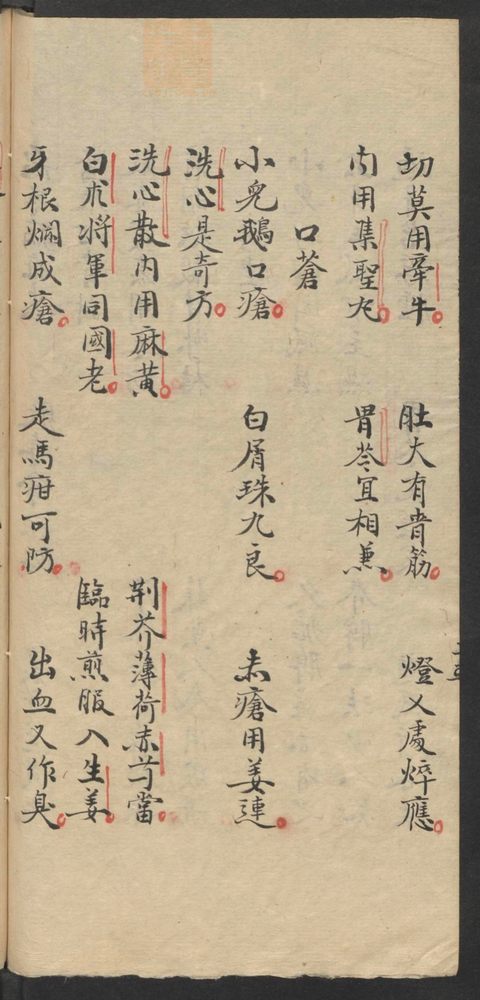 切莫用牽牛 肚大有青筋 燈火處焠應
內用集聖丸 胃苓宜相兼
口蒼
小兒鵝口瘡 白屑珠九良 赤瘡用姜連
洗心是奇方
洗心散內用麻黄 荆芥薄荷赤芍當
白朮将軍同國老 臨時煎服入生姜
牙根爛成瘡 走馬疳可防 出血又作臭